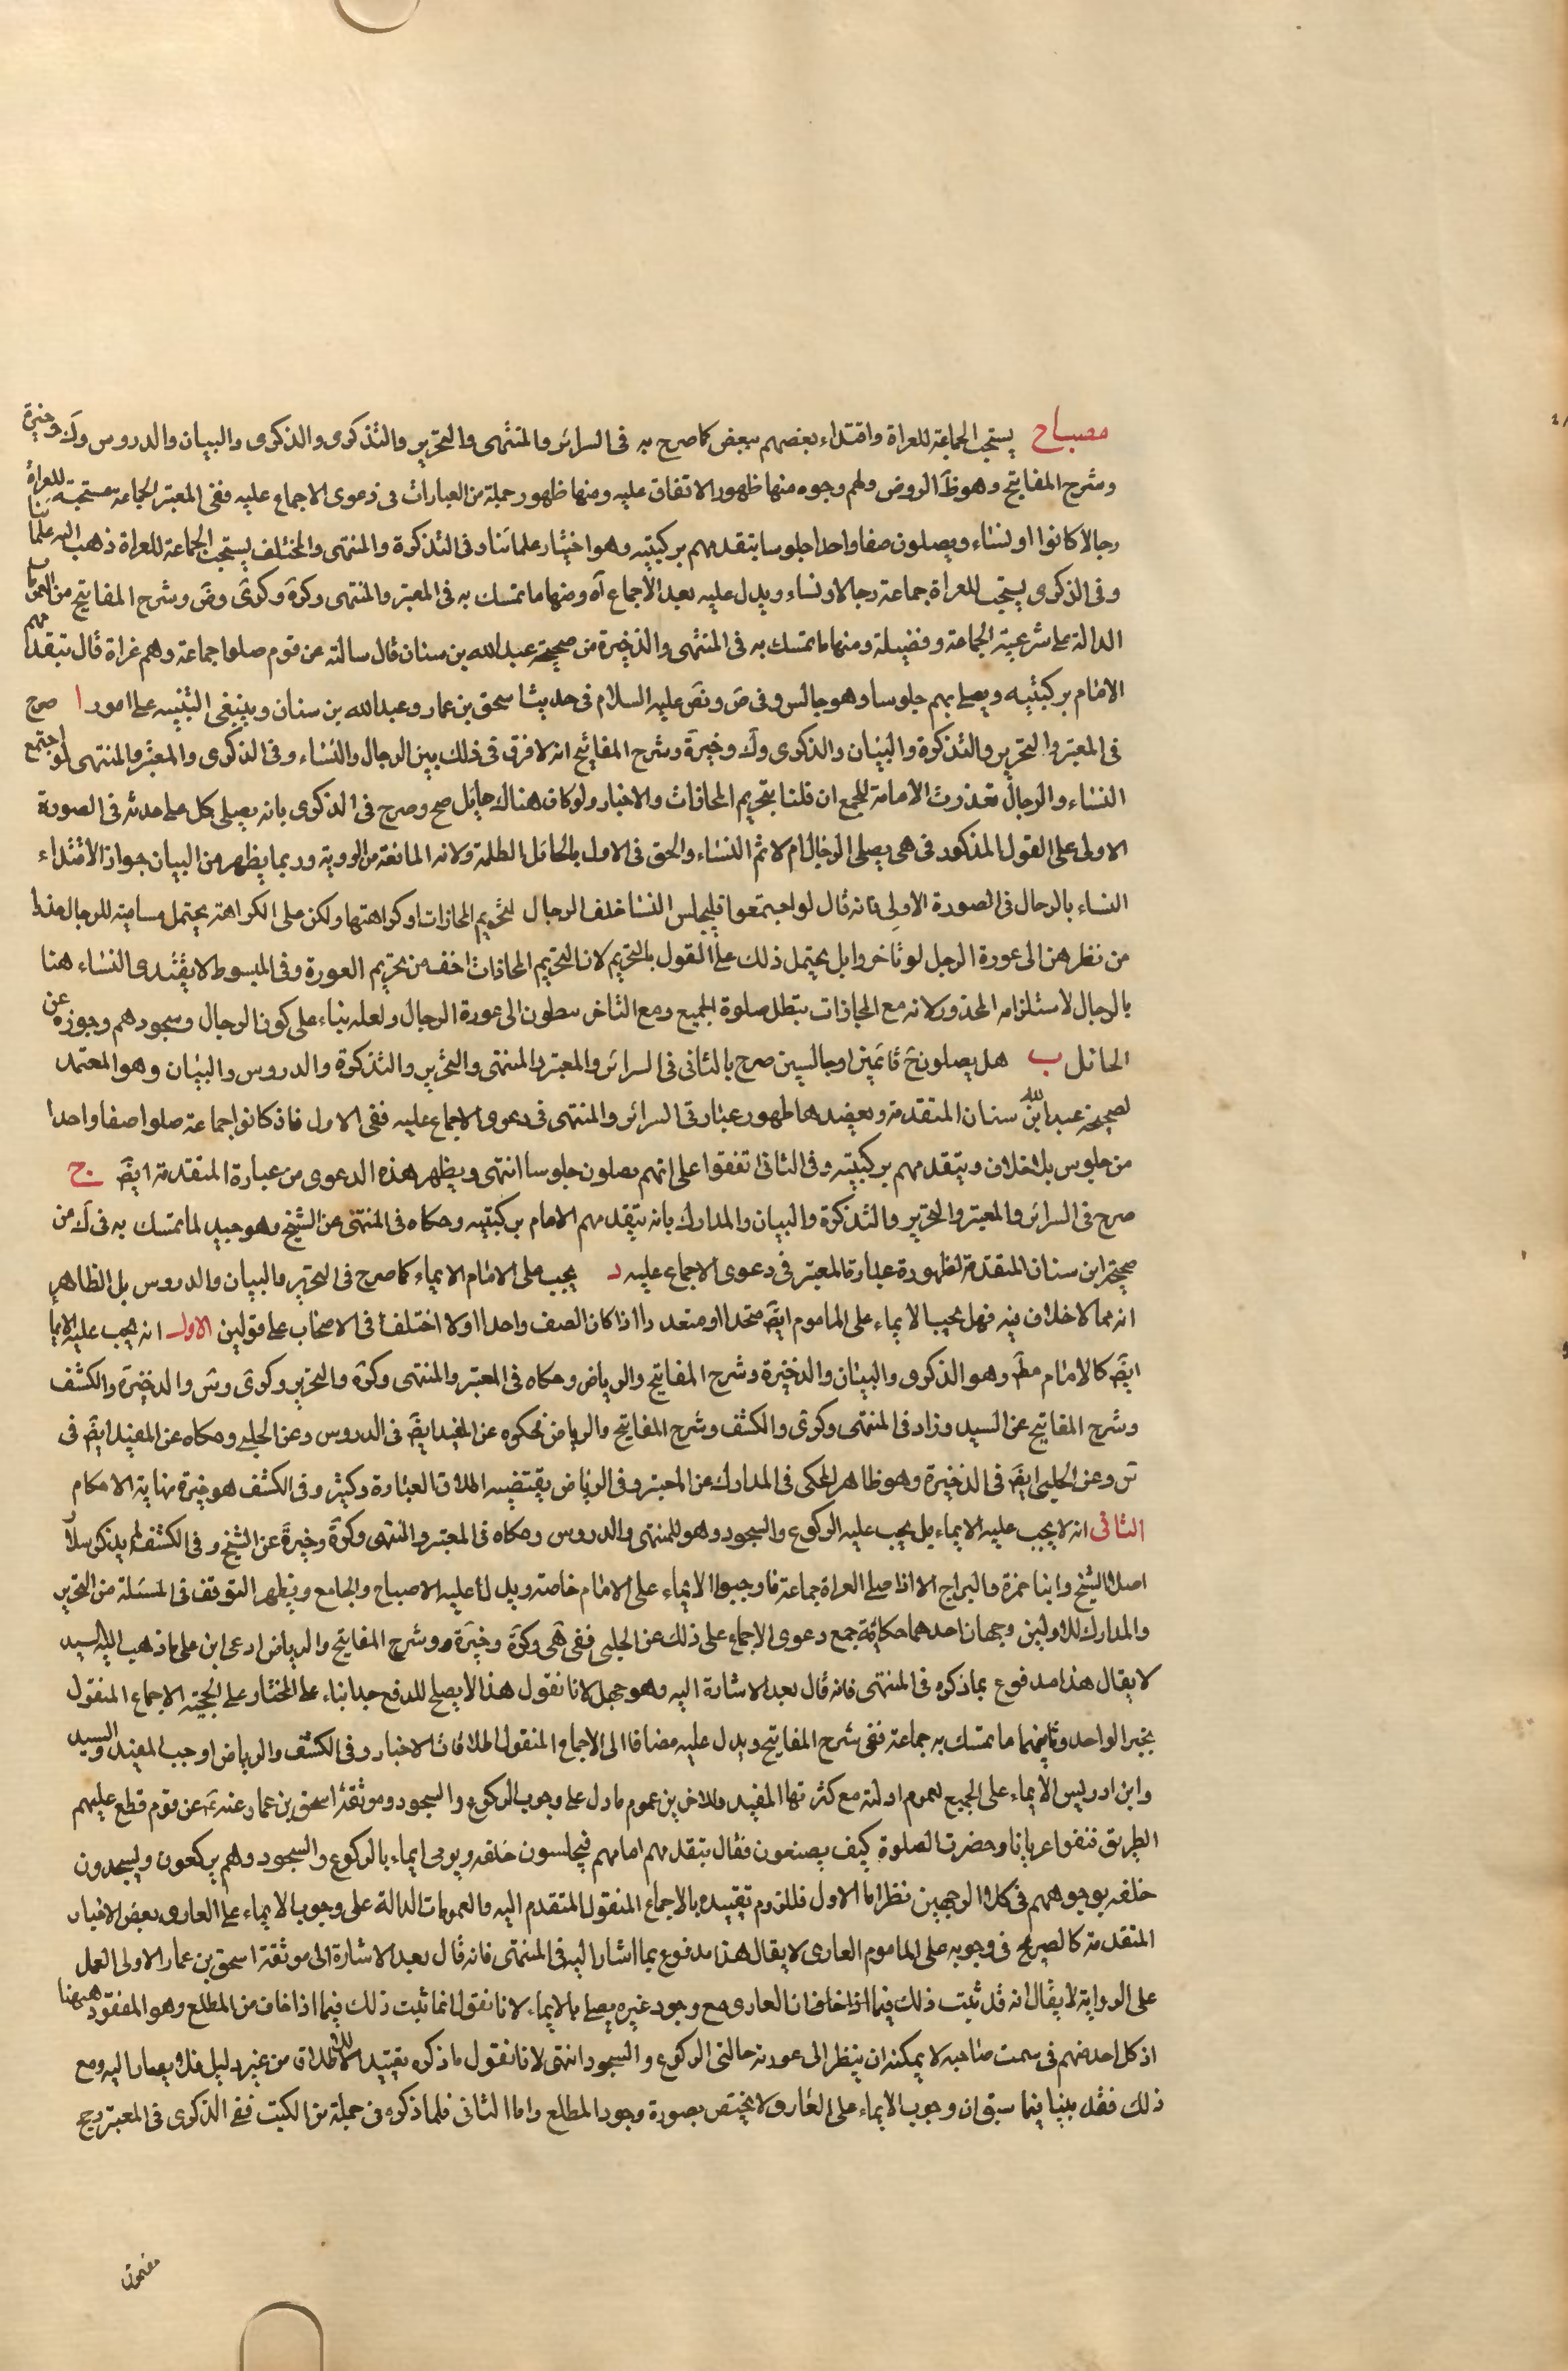 مصباح يستحب الجماعة للعراة واقتداء بعضهم ببعض كما صرح به فى السرائر والمنتهى والتحرير والتذكرى والذكرى والبيان والدروس ولك وخيرة
وشرح المفاتيح وهو ظ الروض ولهم وجوه منها ظهور الاتفاق عليه ومنها ظهور جملة من العبارات فى دعوى الاجماع عليه ففى المعتبر الجماعة مستحبة للعراة
رجالا كانوا او نساء ويصلون صفا واحدا جلوسا يتقدمهم بركبتيه وهو اختيار علمائنا وفى التذكرة والمنتهى والمختلف يستحب الجماعة للعراة ذهب اليه علمائنا
وفى الذكرى يستحب للعراة جماعة رجالا او نساء ويدل عليه بعد الاجماع آه ومنها ما تمسك به فى المعتبر والمنتهى وكرة وكرى وض وشرح المفاتيح من العمومات
الدالة على شرعية الجماعة وفضيلة ومنها ما تمسك به فى المنتهى والذخيرة من صحيحة عبد الله بن سنان قال سالته عن قوم صلوا جماعة وهم عراة قال يتقدمهم
الامام بركبتيه ويصلى بهم جلوسا وهو جالس وفى ض ونص عليه السلام فى حديث اسحق بن عمار وعبد الله بن سنان وينبغى التنبيه على امور ا صرح
فى المعتبر والتحرير والتذكرة والبيان والذكرى ولك وخيرة وشرح المفاتيح انه لا فرق فى ذلك بين الرجال والنساء وفى الذكرى والمعتبر والمنتهى لو اجتمع
النساء والرجال تعذرت الامامة للجمع ان قلنا بتحريم المحاذات والاخبار ولو كان هناك حايل صح وصرح فى الذكرى بانه يصلى كل على حدته فى الصورة
الاولى على القول المذكور فى هى يصلى الرجال ام لا ثم النساء والحق فى الاول بالحائل الظلمة ولانه المانعة من الروية وربما يظهر من البيان جواز الاقتداء
النساء بالرجال فى الصورة الاولى فانه قال لو اجتمعوا فليجلس النسا خلف الرجال لتحريم المحازات او كراهتها ولكن على الكراهة يحتمل مسامتة للرجال حذرا
من نظرهن الى عورة الرجل لو تاخروا بل يحتمل ذلك على القول بالتحريم لان التحريم المحاذات اخف من تحريم العورة وفى المبسوط لا يقتدى النساء هنا
بالرجال لاستلزامه المحذور لانه مع المحازات تبطل صلوة الجميع ومع التاخر ينظرون الى عورة الرجال ولعله بناء على كون الرجال وسجودهم وجوزه عن
الحائل ب هل يصلون ح قائمين او جالسين صرح بالثانى فى السرائر والمعتبر والمنتهى والتحرير والتذكرة والدروس والبيان وهو المعتمد
لصحيحة عبد الله ابن سنان المتقدمة ويعضدها ظهور عبارتى السرائر والمنتهى فى دعوى الاجماع عليه ففى الاول فاذ كانوا جماعة صلوا صفا واحدا
من جلوس بلا خلاف ويتقدمهم بركبتيه وفى الثانى اتفقوا على انهم يصلون جلوسا انتهى ويظهر هذه الدعوى من عبارة المتقدمة ايض ج
صرح فى السرائر والمعتبر والتحرير والتذكرة والبيان والمدارك بانه يتقدمهم الامام بركبتيه وحكاه فى المنتهى عن الشيخ وهو جيد لما تمسك به فى لك من
صحيحة ابن سنان المتقدمة لظهورة عبارة المعتبر فى دعوى الاجماع عليه د يجب على الامام الايماء كما صرح فى التحرير والبيان والدروس بل الظاهر
انه مما لا خلاف فيه فهل يجب الايماء على الماموم ايض متحدا او متعددا اذا كان الصف واحدا او لا اختلف فى الاصحاب على قولين الاول انه يجب عليه الايما
ايض كالامام مط وهو الذكرى والبيان والذخيرة وشرح المفاتيح والرياض وحكاه فى المعتبر والمنتهى وكرة والتحرير وكرى وس والذخيرة والكشف
وشرح المفاتيح عن السيد وزاد فى المنتهى وكرى والكشف وشرح المفاتيح والرياض فحكوه عن المفيد ايض فى الدروس وعن الحلى وحكاه عن المفيد ايض فى
س وعن الحلبى ايض فى الذخيرة وهو ظاهر المحكى فى المدارك عن المعتبر وفى الرياض يقتضيه اطلاق العبارة وكثير وفى الكشف هو خيرة نهاية الاحكام
الثانى انه لا يجب عليه الايماء بل يجب عليه الركوع والسجود وهو للمنتهى والدروس وحكاه فى المعتبر والمنتهى وكرة وخيرة عن الشيخ وفى الكشف لم يذكر سلا
اصلا الشيخ وابنا حمزة والبراج الا اذا صلى العراة جماعة فاوجبوا الايماء على الامام خاصة ويدل لنا عليه الاصباح والجامع ويظهر التوقف فى المسئلة من التحرير
والمدارك للاولين وجهان احدهما حكاية جمع دعوى الاجماع على ذلك عن الحلى ففى هى وكرة وخيرة وشرح المفاتيح والرياض ادعى ابن على ما ذهب اليه السيد
لا يقال هذا مدفوع بما ذكره فى المنتهى فانه قال بعد الاشارة اليه وهو جهل لانا نقول هذا لا يصلح للدفع جدا بناء على المختار على الحجية الاجماع المنقول
بخبر الواحد وثانيهما ما تمسك به جماعة ففى شرح المفاتيح ويدل عليه مضافا الى الاجماع المنقول اطلاقات الاخبار وفى الكشف والرياض اوجب المفيد والسيد
وابن ادريس الايماء على الجميع لعموم ادلته مع كثرتها المفيد وللاخرين عموم ما دل على وجوب الركوع والسجود وموثقة اسحق بن عمار عنه ع عن قوم قطع عليهم
الطريق فنفوا عريانا وحضرت الصلوة كيف يصنعون فقال يتقدمهم امامهم فيجلسون خلفه ويومى ايماء بالركوع والسجود وهم يركعون ويسجدون
خلفه بوجوههم فى كلا الوجهين نظر اما الاول فللزوم تقييده بالاجماع المنقول المتقدم اليه والعمومات الدالة على وجوب الايماء على العارى بعض الاخبار
المتقدمة كالصريح فى وجوبه على الماموم العارى لا يقال هذا مدفوع بما اشار اليه فى المنتهى فانه قال بعد الاشارة الى موثقة اسحق بن عمار الاولى العمل
على الرواية لا يقال انه قد ثبت ذلك فيما اذا خاف ان العارى مع وجود غيره يصلى بالايماء لانا نقول انما ثبت ذلك فيما اذا خاف من المطلع وهو المفقود هيهنا
اذ كل احد منهم فى سمت صاحبه لا يمكنه ان ينظر الى عورته حالتى الركوع والسجود انتهى لانا نقول ما ذكره تقييد للاطلاق من غير دليل فلا يصار اليه ومع
ذلك فقد بينا فيما سبق ان وجوب الايماء على العارى لا يختص بصورة وجود المطلع واما الثانى فلما ذكره فى جملة من الكتب ففى الذكرى فى المعتبر رجح